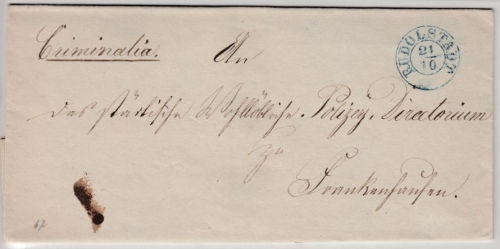 Criminalia.
An
RUDOLSTADT
21
10
das städtische Wohllöbliche Polizey-Directorium
zu
Frankenhausen.